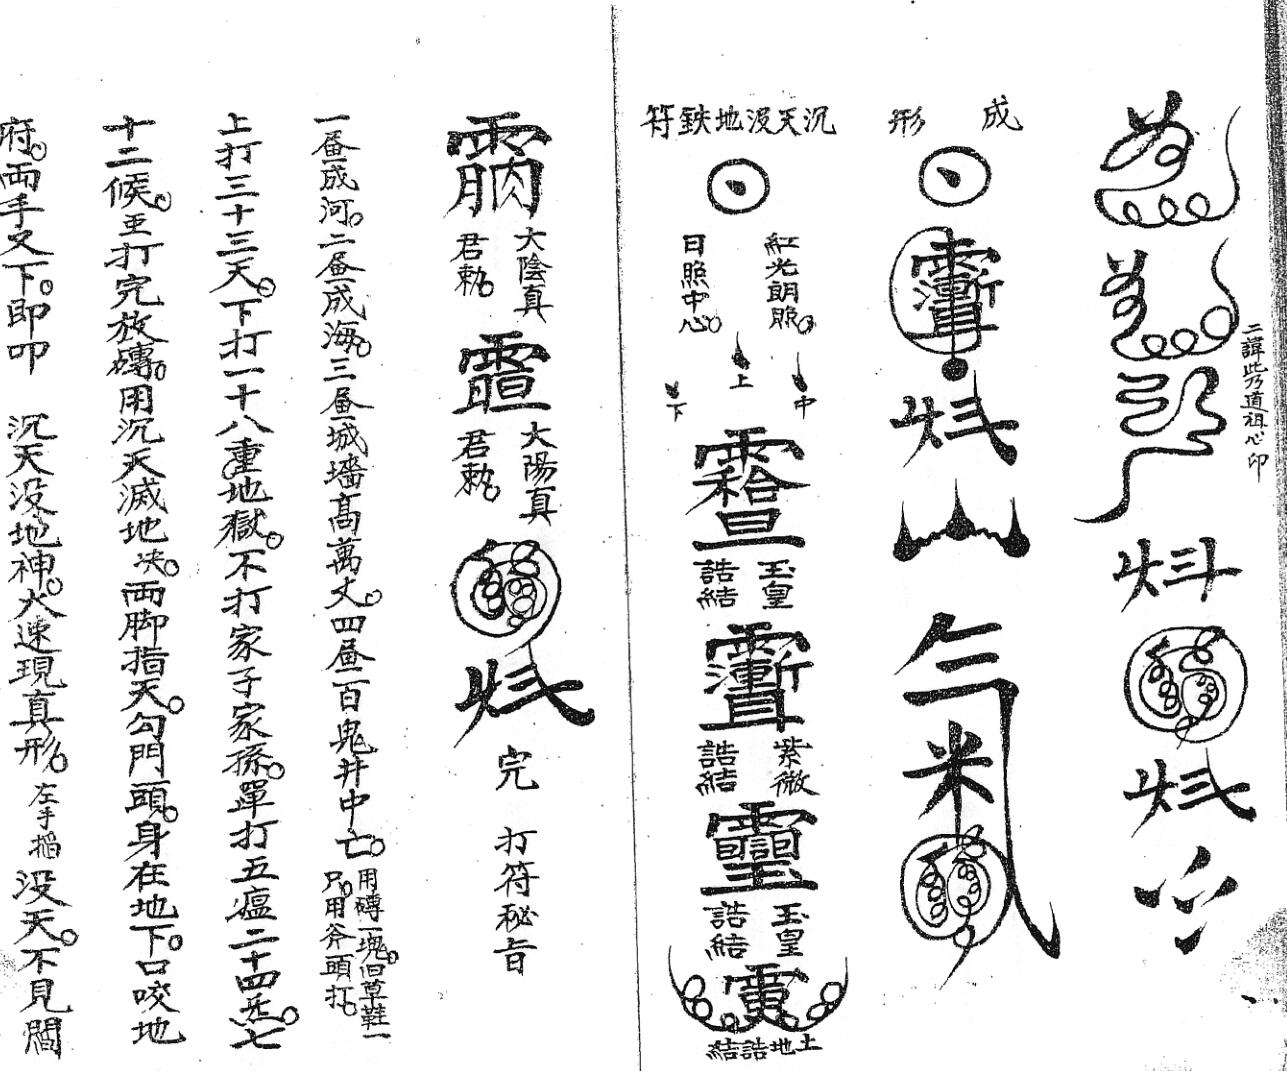 二諱此乃道祖心印
成形
沉天没地鈇符
紅光朗照
日照中心
上
中
下
玉皇
誥結
紫微
誥結
玉皇
誥結
土地誥結
太陰真
君勅
太陽真
君勅
完 打符秘旨
一昼成河。二昼成海。三昼城墻高萬丈。四昼百鬼井中亡。用磚一塊。旧草鞋一只。用斧頭打。
上打三十三天。下打一十八重地獄。不打家子家孫。單打五瘟二十四炁。七
十二候。至打完放磚。用沉天滅地决。兩脚指天。勾門頭。身在地下。口咬地
府。兩手叉下。即叩 沉天没地神。火速現真形。左手搯 没天。不見閻